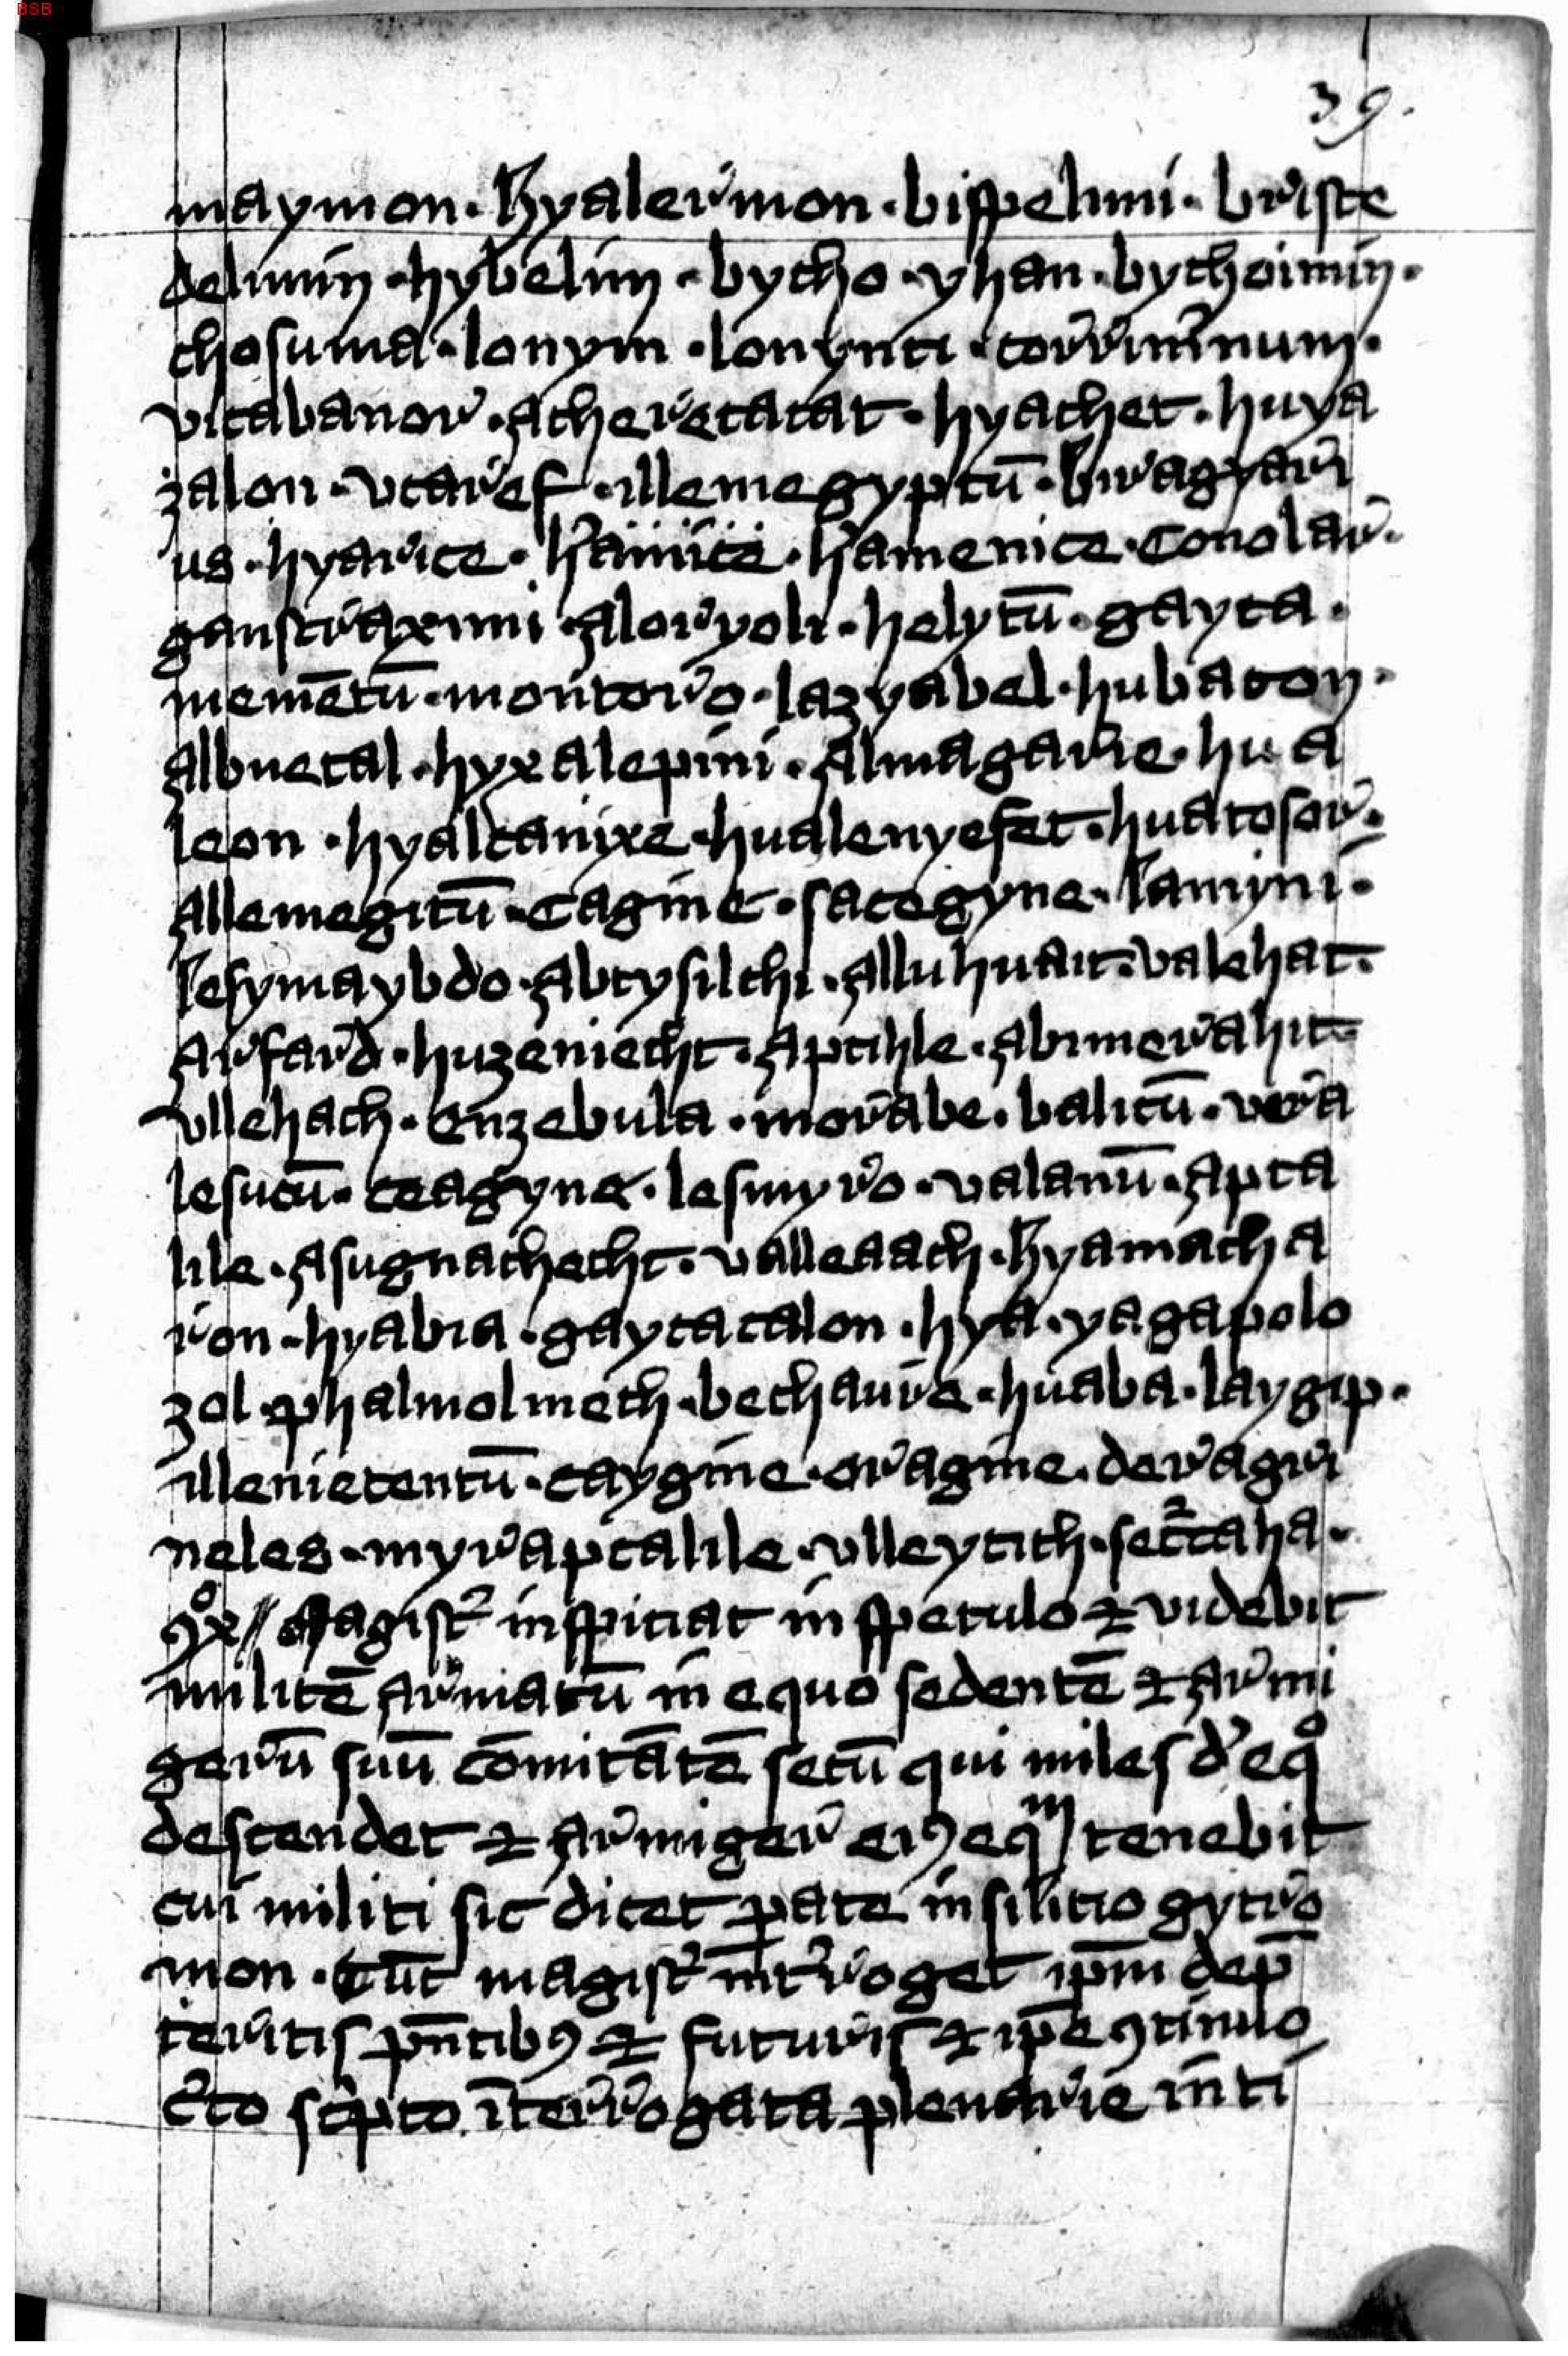 BSB
39.
maymon · Hyalermon · bisselimi · briste
delimin · hybelim · bycho · yhan · bychoimin ·
chosuma · lonym · lonynti · corriminum ·
vitabanor · acheretatat · hyachet · huya
zalon · vtaref · illemegyptū · briagyari
us · hyarice · hamenice · Conolar ·
ganstraximi · aloryoli · helytū · gayta ·
memētū · montoro · lazyabel · hubaton ·
albuetal · hyxalepini · almagarie · hua
leon · hyaltanixe · hualenyefet · huatosor ·
allemegitū · Cagine · sategyne · lamyni ·
lesymaybdo · abtysilchi · alluhuait · valehat ·
arfard · huzeniecht · aptihle · abimerahit
vllehach · Enzebula · morabe · balitū · vera
lesutū · teagyne · lesmyro · valanū · apta
lile · asugnachecht · valleaach · Hyamacha
ron · hyabra · gaytatalon · hya · yagapolo
zol · phalmolmech · bechaure · huaba · laygip ·
illemetentū · Caygine · oragine · deragiri
neles · myraptalile · vlleytith ·
Magist inspiciat in speculo ⁊ videbit
militē armatū in equo sedentē ⁊ armi
gerū suū cōmitātē secū qui miles d' eqͦ
descendet ⁊ armiger eiꝯ eqᵐ tenebit
cui militi sic dicet pate in silitio gytro
mon · tūc magist int'roget ipm dep̄
teritis pn̄tibꝯ ⁊ futuris ⁊ ip̄e ꝯtinuo
c̄to sc'pto īterrogata plenarie in̄ti